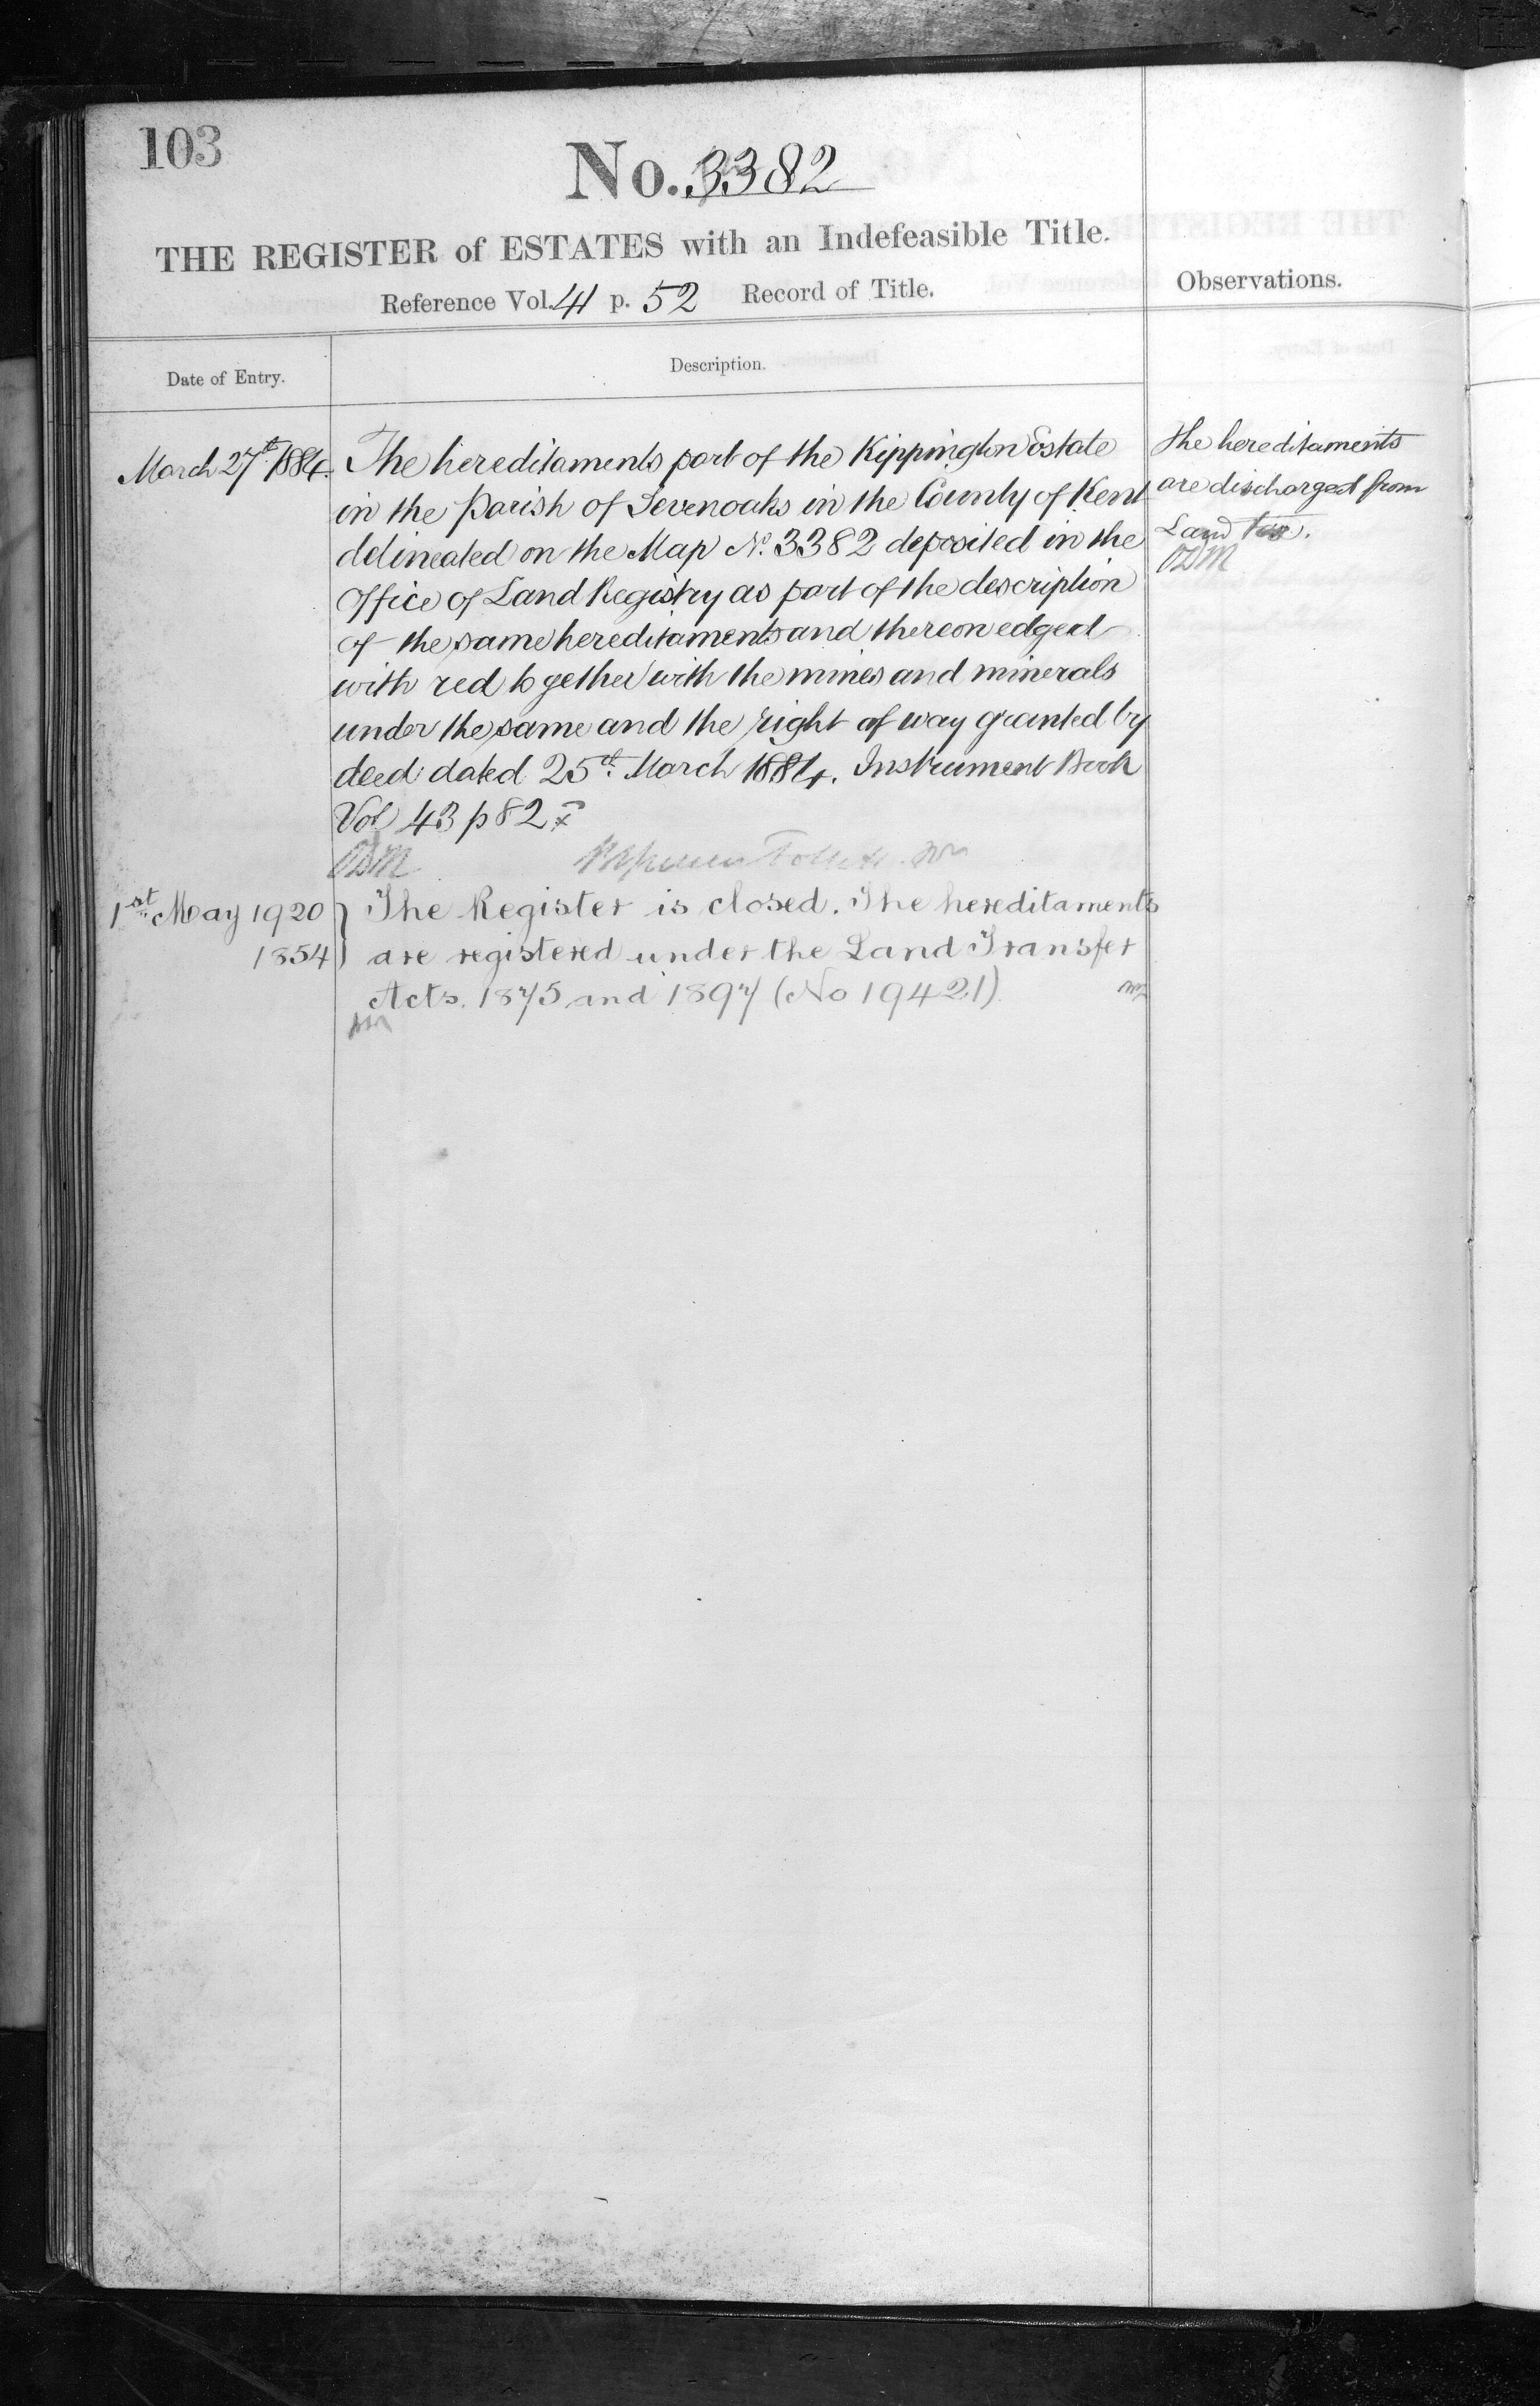 103
No. 3382
THE REGISTER of ESTATES with an Indefeasible Title.
Reference Vol. 41 p. 52 Record of Title.
Observations.
Date of Entry.
Description.
March 27th 1884.
The hereditaments part of the Kippington Estate
in the Parish of Sevenoaks in the County of Kent
delineated on the Map No. 3382 deposited in the
Office of Land Registry as part of the description
of the same hereditaments and thereon edged
with red together with the mines and minerals
under the same and the right of way granted by
deed dated 25th March 1884. Instrument Book
Vol 43 p 82
The hereditaments
are discharged from
Land tax.
1st May 1920
1854
The Register is closed. The hereditaments
are registered under the Land Transfer
Acts. 1875 and 1897 (No 19421).